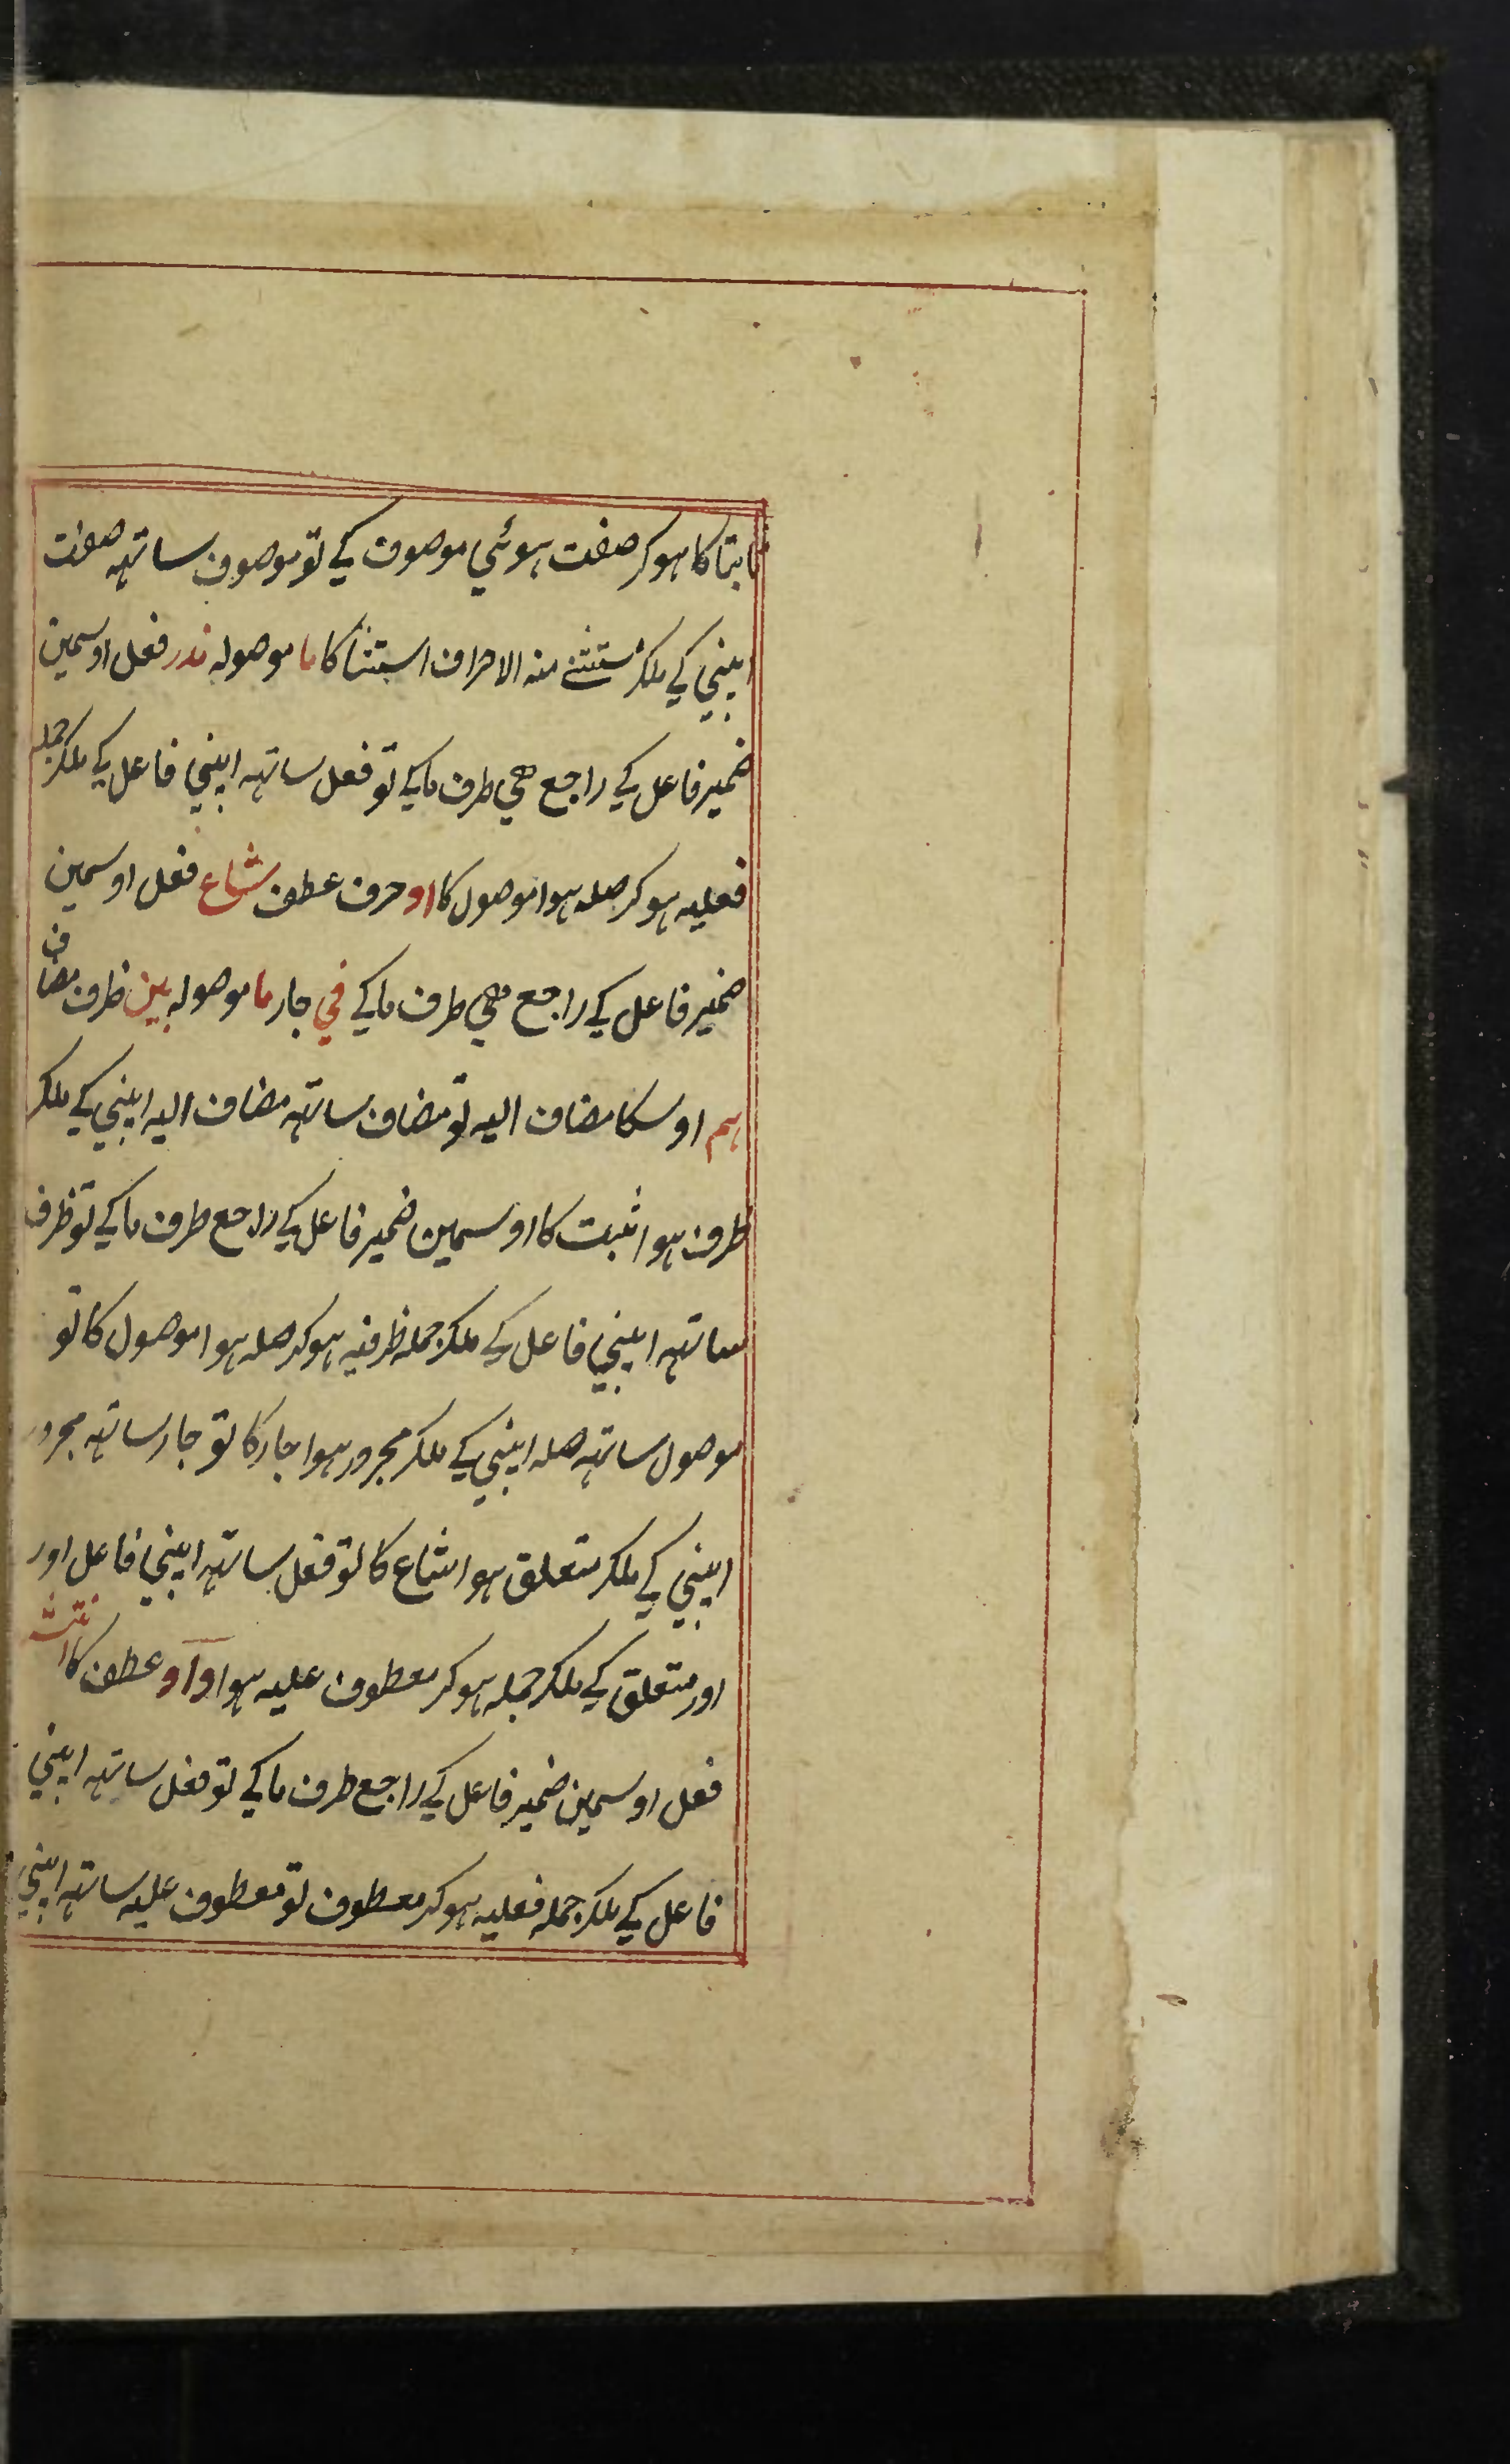 ثابتا کا ہوکر صفت ہوئي موصوف کے تو موصوف ساتہہ صفت
اپنیي کے ملکر مستثنے منہ الا حراف استثنا کا ما موصولہ ندر فعل اوسمین
ضمیر فاعل کے راجع ھي طرف ما کے تو فعل ساتہہ اپنیي فاعل کے ملکر جملہ
فعلیہ ہوکر صلہ ہوا موصول کا او حرف عطف شاع فعل اوسمین
ضمیر فاعل کے راجع ھي طرف ما کے في جار ما موصولہ بین ظرف مضاف
ہم اوسکا مضاف الیہ تو مضاف ساتہہ مضاف الیہ اپنیي کے ملکر
ظرف ہوا ثبت کا اوسمین ضمیر فاعل کے راجع طرف ما کے تو ظرف
ساتہہ اپنیي فاعل کے ملکر جملہ ظرفیہ ہوکر صلہ ہوا موصول کا تو
موصول ساتہہ صلہ اپنیي کے ملکر مجرور ہوا جار کا تو جار ساتہہ مجرور
اپنیي کے ملکر متعلق ہوا شاع کا تو فعل ساتہہ اپنیي فاعل اور
اور متعلق کے ملکر جملہ ہوکر معطوف علیہ ہوا واو عطف کا
فعل اوسمین ضمیر فاعل کے راجع طرف ما کے تو فعل ساتہہ اپنیي
فاعل کے ملکر جملہ فعلیہ ہوکر معطوف تو معطوف علیہ ساتہہ اپنیي